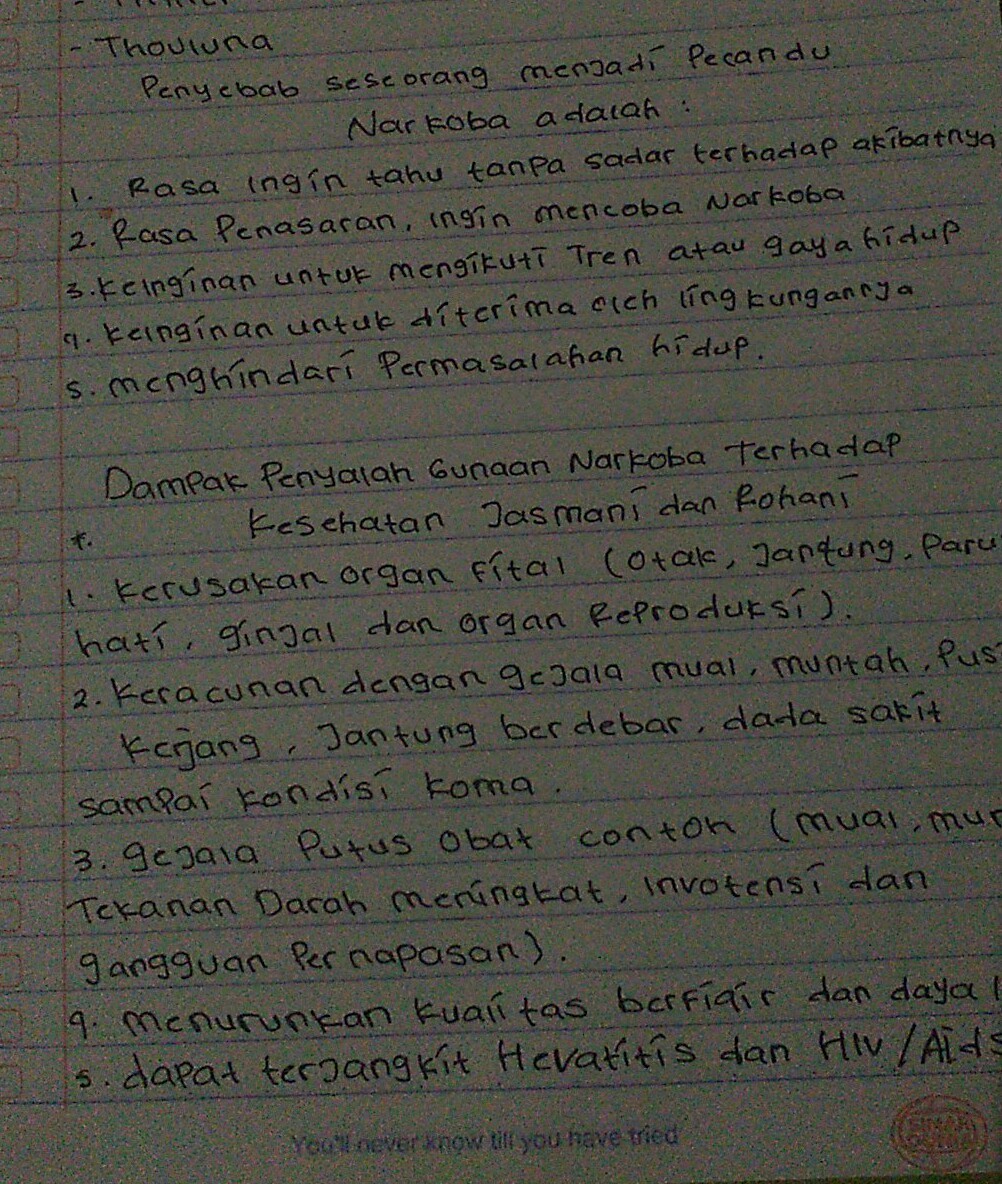 - Thouluna
Penyebab seseorang menjadi Pecandu
Narkoba adalah :
1. Rasa ingin tahu tanpa sadar terhadap akibatnya
2. Rasa Penasaran, ingin mencoba Narkoba
3. Keinginan untuk mengikuti Tren atau gaya hidup
4. Keinginan untuk diterima oleh lingkungannya
5. menghindari Permasalahan hidup.
Dampak Penyalah Gunaan Narkoba Terhadap
*. Kesehatan Jasmani dan Rohani
1. Kerusakan organ Fital (Otak, Jantung, Paru
hati, ginjal dan organ Reproduksi).
2. Keracunan dengan gejala mual, muntah, Pus
Kejang, Jantung berdebar, dada sakit
sampai kondisi koma.
3. gejala Putus Obat contoh (mual, mun
Tekanan Darah meningkat, Invotensi dan
gangguan Pernapasan).
4. menurunkan kualitas berfiqir dan daya
5. dapat terjangkit Hevatitis dan HIV/Aids
You'll never know till you have tried
SINAR